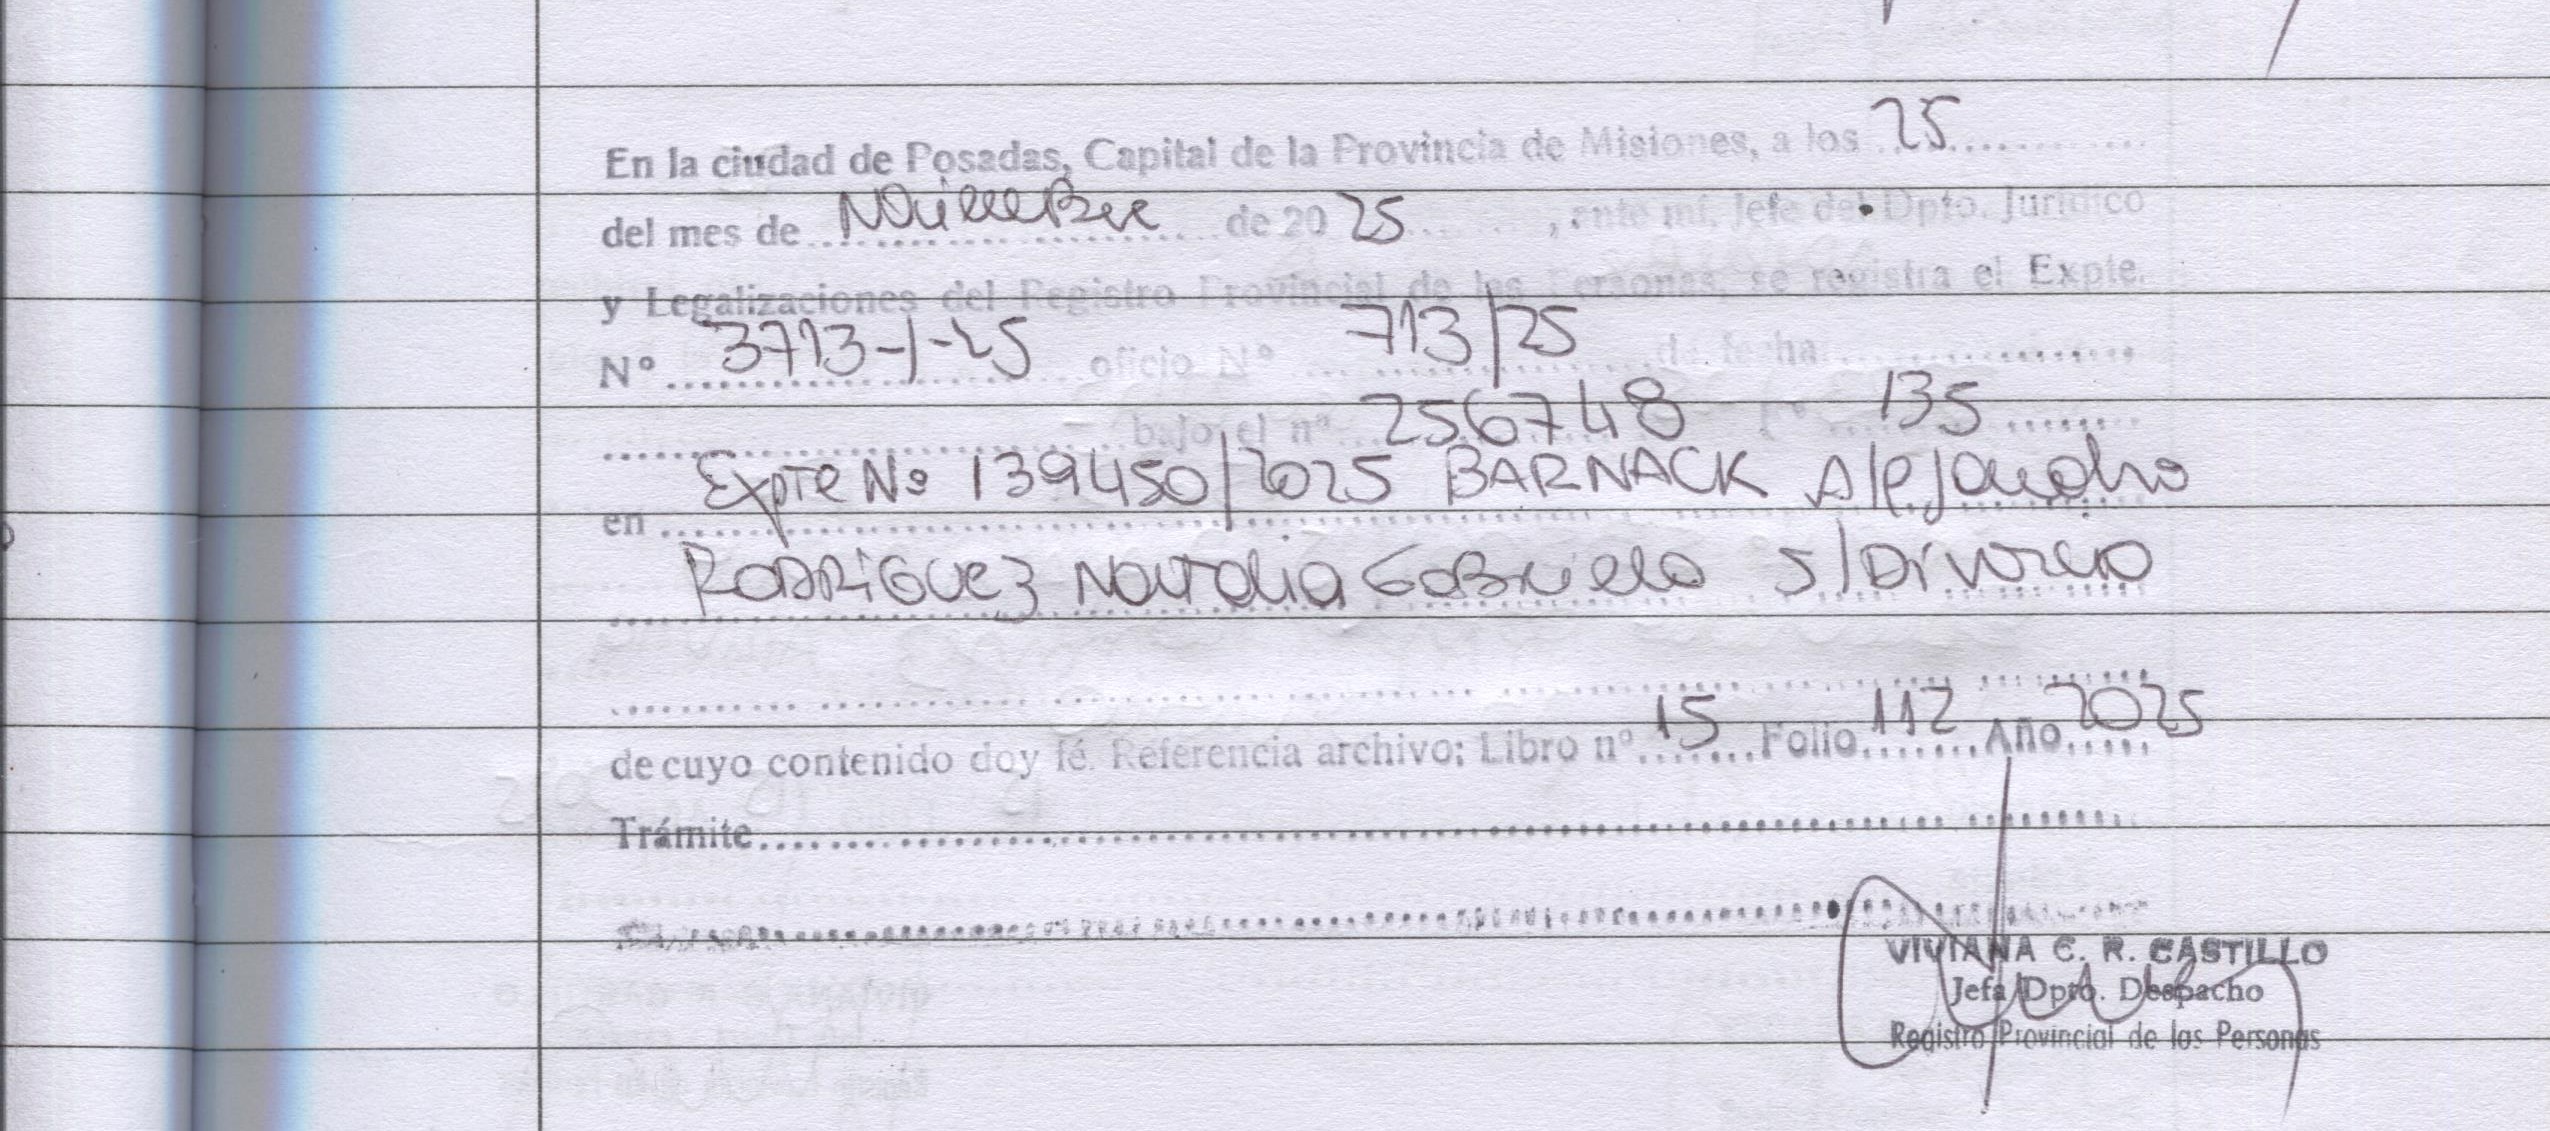 En la ciudad de Posadas, Capital de la Provincia de Misiones, a los 25
del mes de Noviembre de 20 25, ante mí, Jefe del Dpto. Jurídico
y Legalizaciones del Registro Provincial de las Personas, se registra el Expte.
Nº 3713-1-25 oficio Nº 713/25 de fecha
bajo el nº 256748 Fº 135
en Expte Nº 139450/2025 BARNACK Alejandro
RODRIGUEZ Natalia Gabriela S/Divorcio
de cuyo contenido doy fé. Referencia archivo: Libro nº 15 Folio 112 Año 2025
Trámite
VIVIANA C. R. CASTILLO
Jefa Dpto. Despacho
Registro Provincial de las Personas